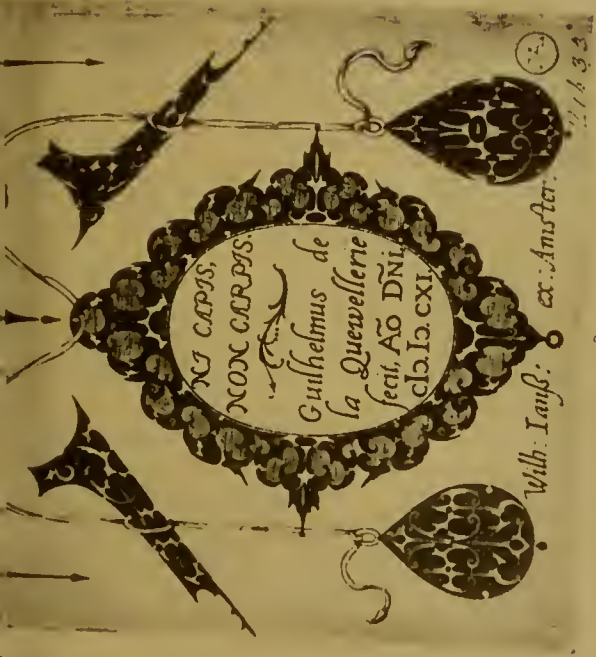 NI CAPIS,
NON CARPIS.
Guilhelmus de
la Quewellerie
fecit, AÕ DÑI,
cIɔ.Iɔ.CXI.
Wilh: Ianß: ex: Amster: